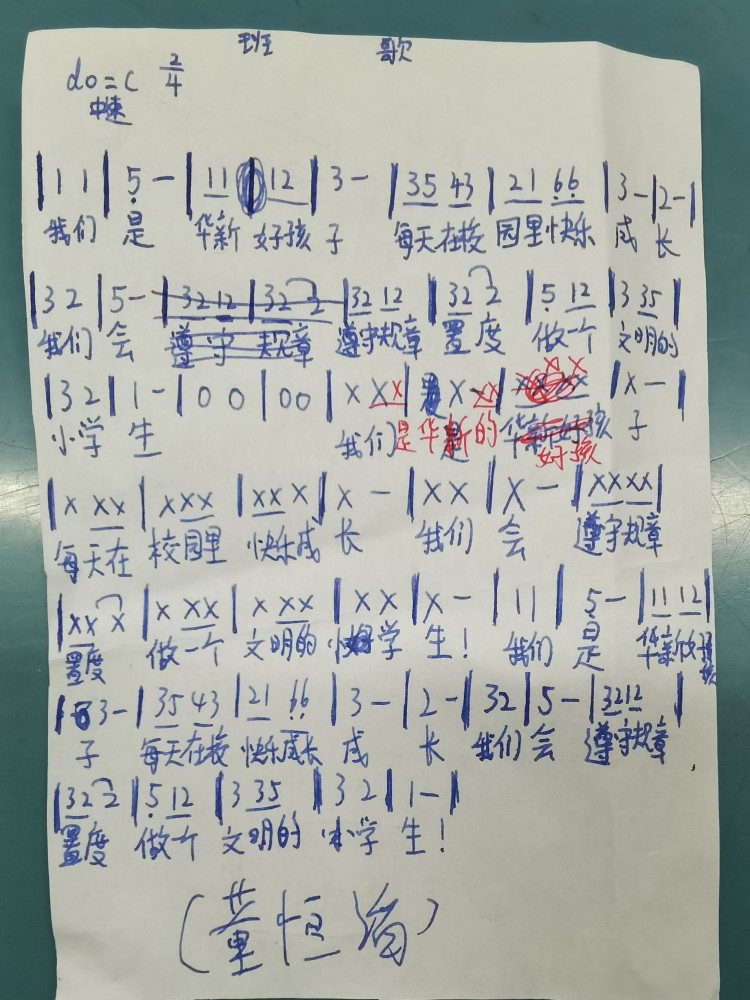 班 歌
do=C 2/4
中速
|1 1|5 -|11 12|3 -|35 43|21 66|3 -|2 -|
我们 是 华新 好孩 子 每天在校 园里快乐 成 长
|32|5 -|32 12|32 2|32 12|32 2|5 12|3 35|
我们 会 遵守 规章 遵守规章 置度 做一个 文明的
|32|1 -|00|00|x xx|x xx|x x|x -|
小学 生 我们是华新的 华新好孩 好孩 子
|x xx|xxx|xx x|x -|xx|x -|xxxx|
每天在 校园里 快乐成 长 我们 会 遵守规章
|xx x|x xx|x xx|xx|x -|11|5 -|11 12|
置度 做一个 文明的 学 生! 我们 是 华新好孩
|3 -|35 43|21 66|3 -|2 -|32|5 -|3212|
子 每天在校 快乐成长 成 长 我们 会 遵守规章
|32 2|5 12|3 35|32|1 -|
置度 做一个 文明的 小学 生!
(董恒)